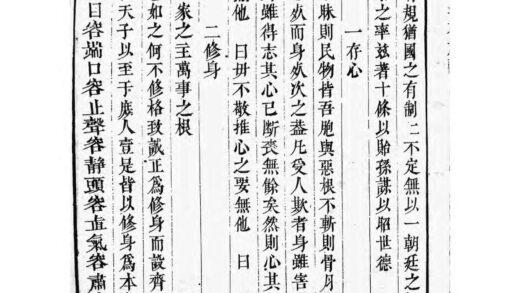 有規猶國之有制二不定無以一朝廷之
之率茲著十條以貽孫謀以昭世德
一存心
脉則民物皆吾胞與惡根不斬則骨月
次而身次次之葢凡受人欺者身雖害
雖得志其心已斷丧無餘矣然則心其
他 曰毋不敢推心之要無他 曰
二修身
家之主萬事之根
如之何不修格致誠正為修身而設齊
天子以至于庶人壹是皆以修身為本
目容端口容止聲容静頭容直氣容肅